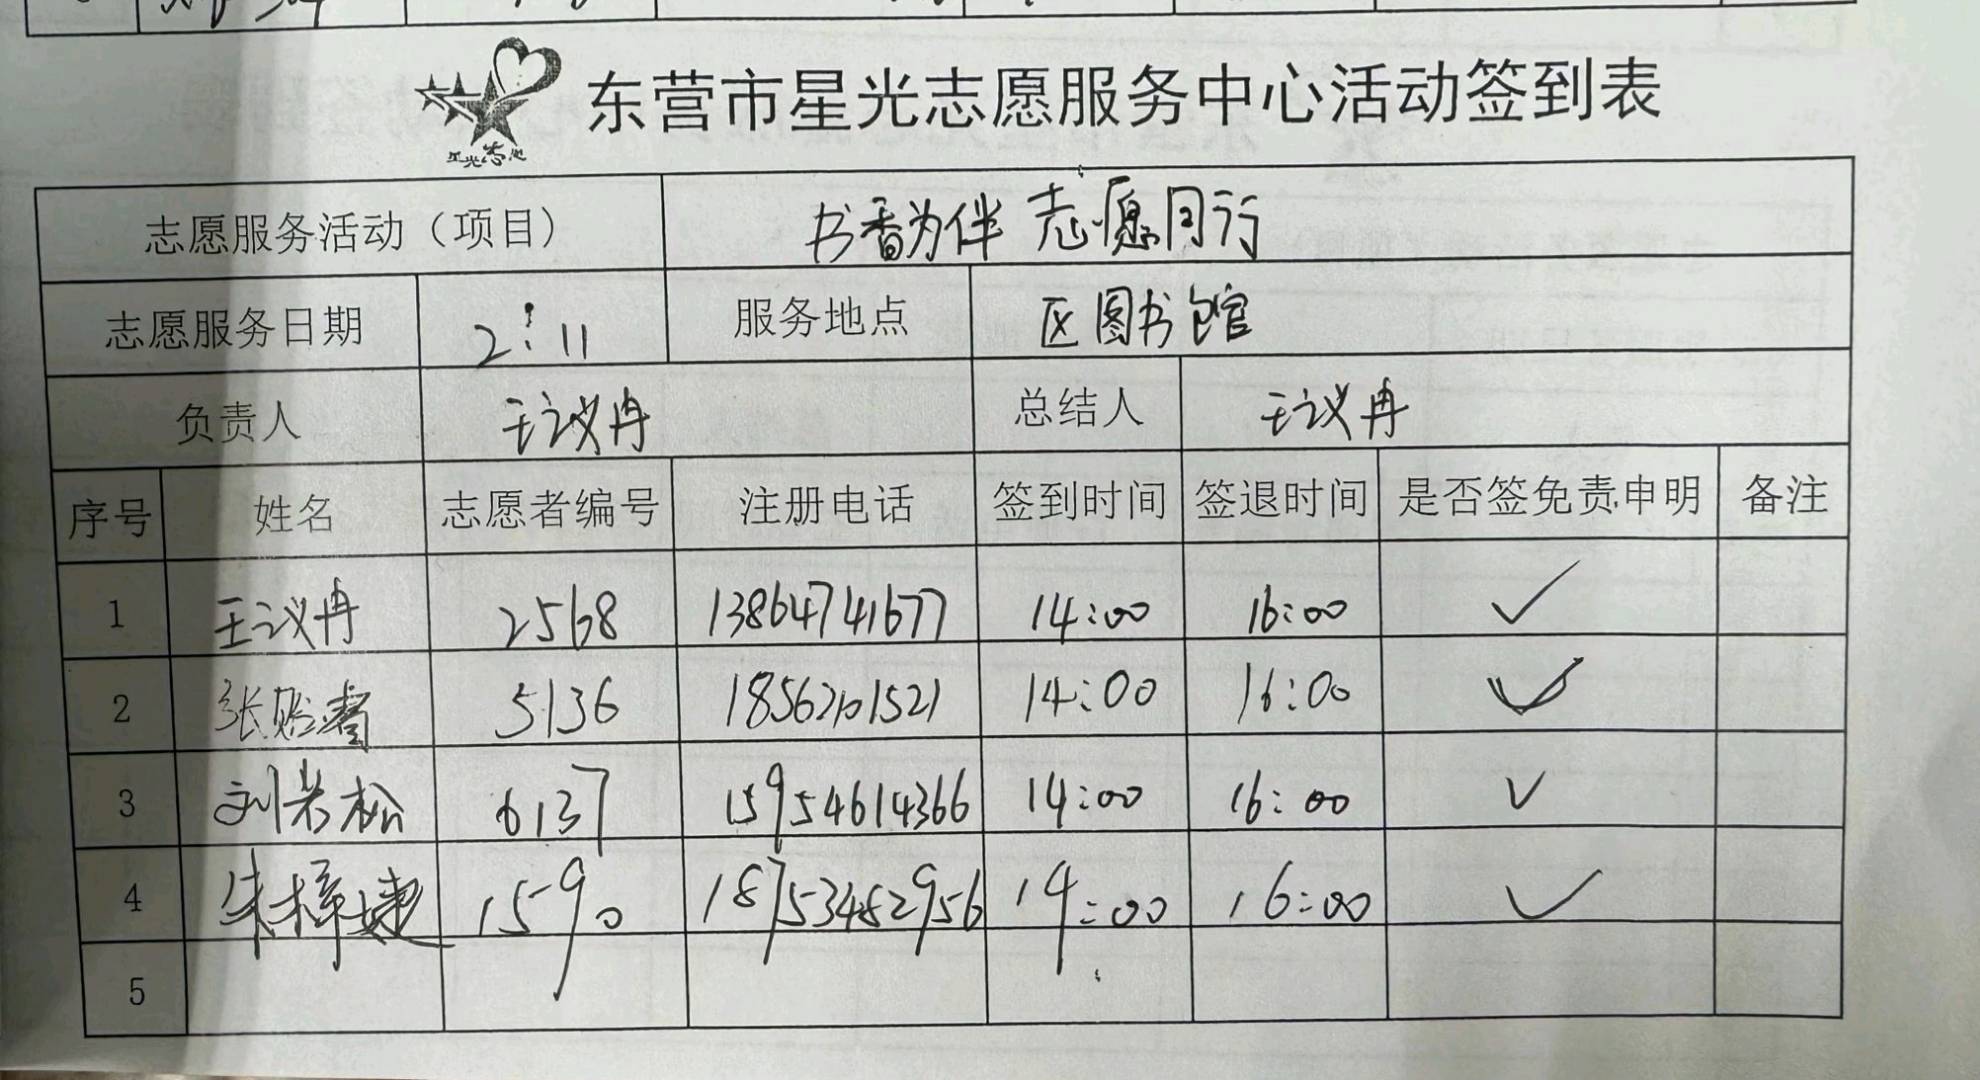 星光志愿
东营市星光志愿服务中心活动签到表
志愿服务活动（项目） 书香为伴 志愿同行
志愿服务日期 2:11 服务地点 区图书馆
负责人 王议冉 总结人 王议冉
序号 姓名 志愿者编号 注册电话 签到时间 签退时间 是否签免责申明 备注
1 王议冉 2568 13864741677 14:00 16:00 ✓
2 张贻睿 5136 18562101521 14:00 16:00 ✓
3 刘芳松 6137 15954614366 14:00 16:00 ✓
4 朱梓婕 1590 18753482956 14:00 16:00 ✓
5